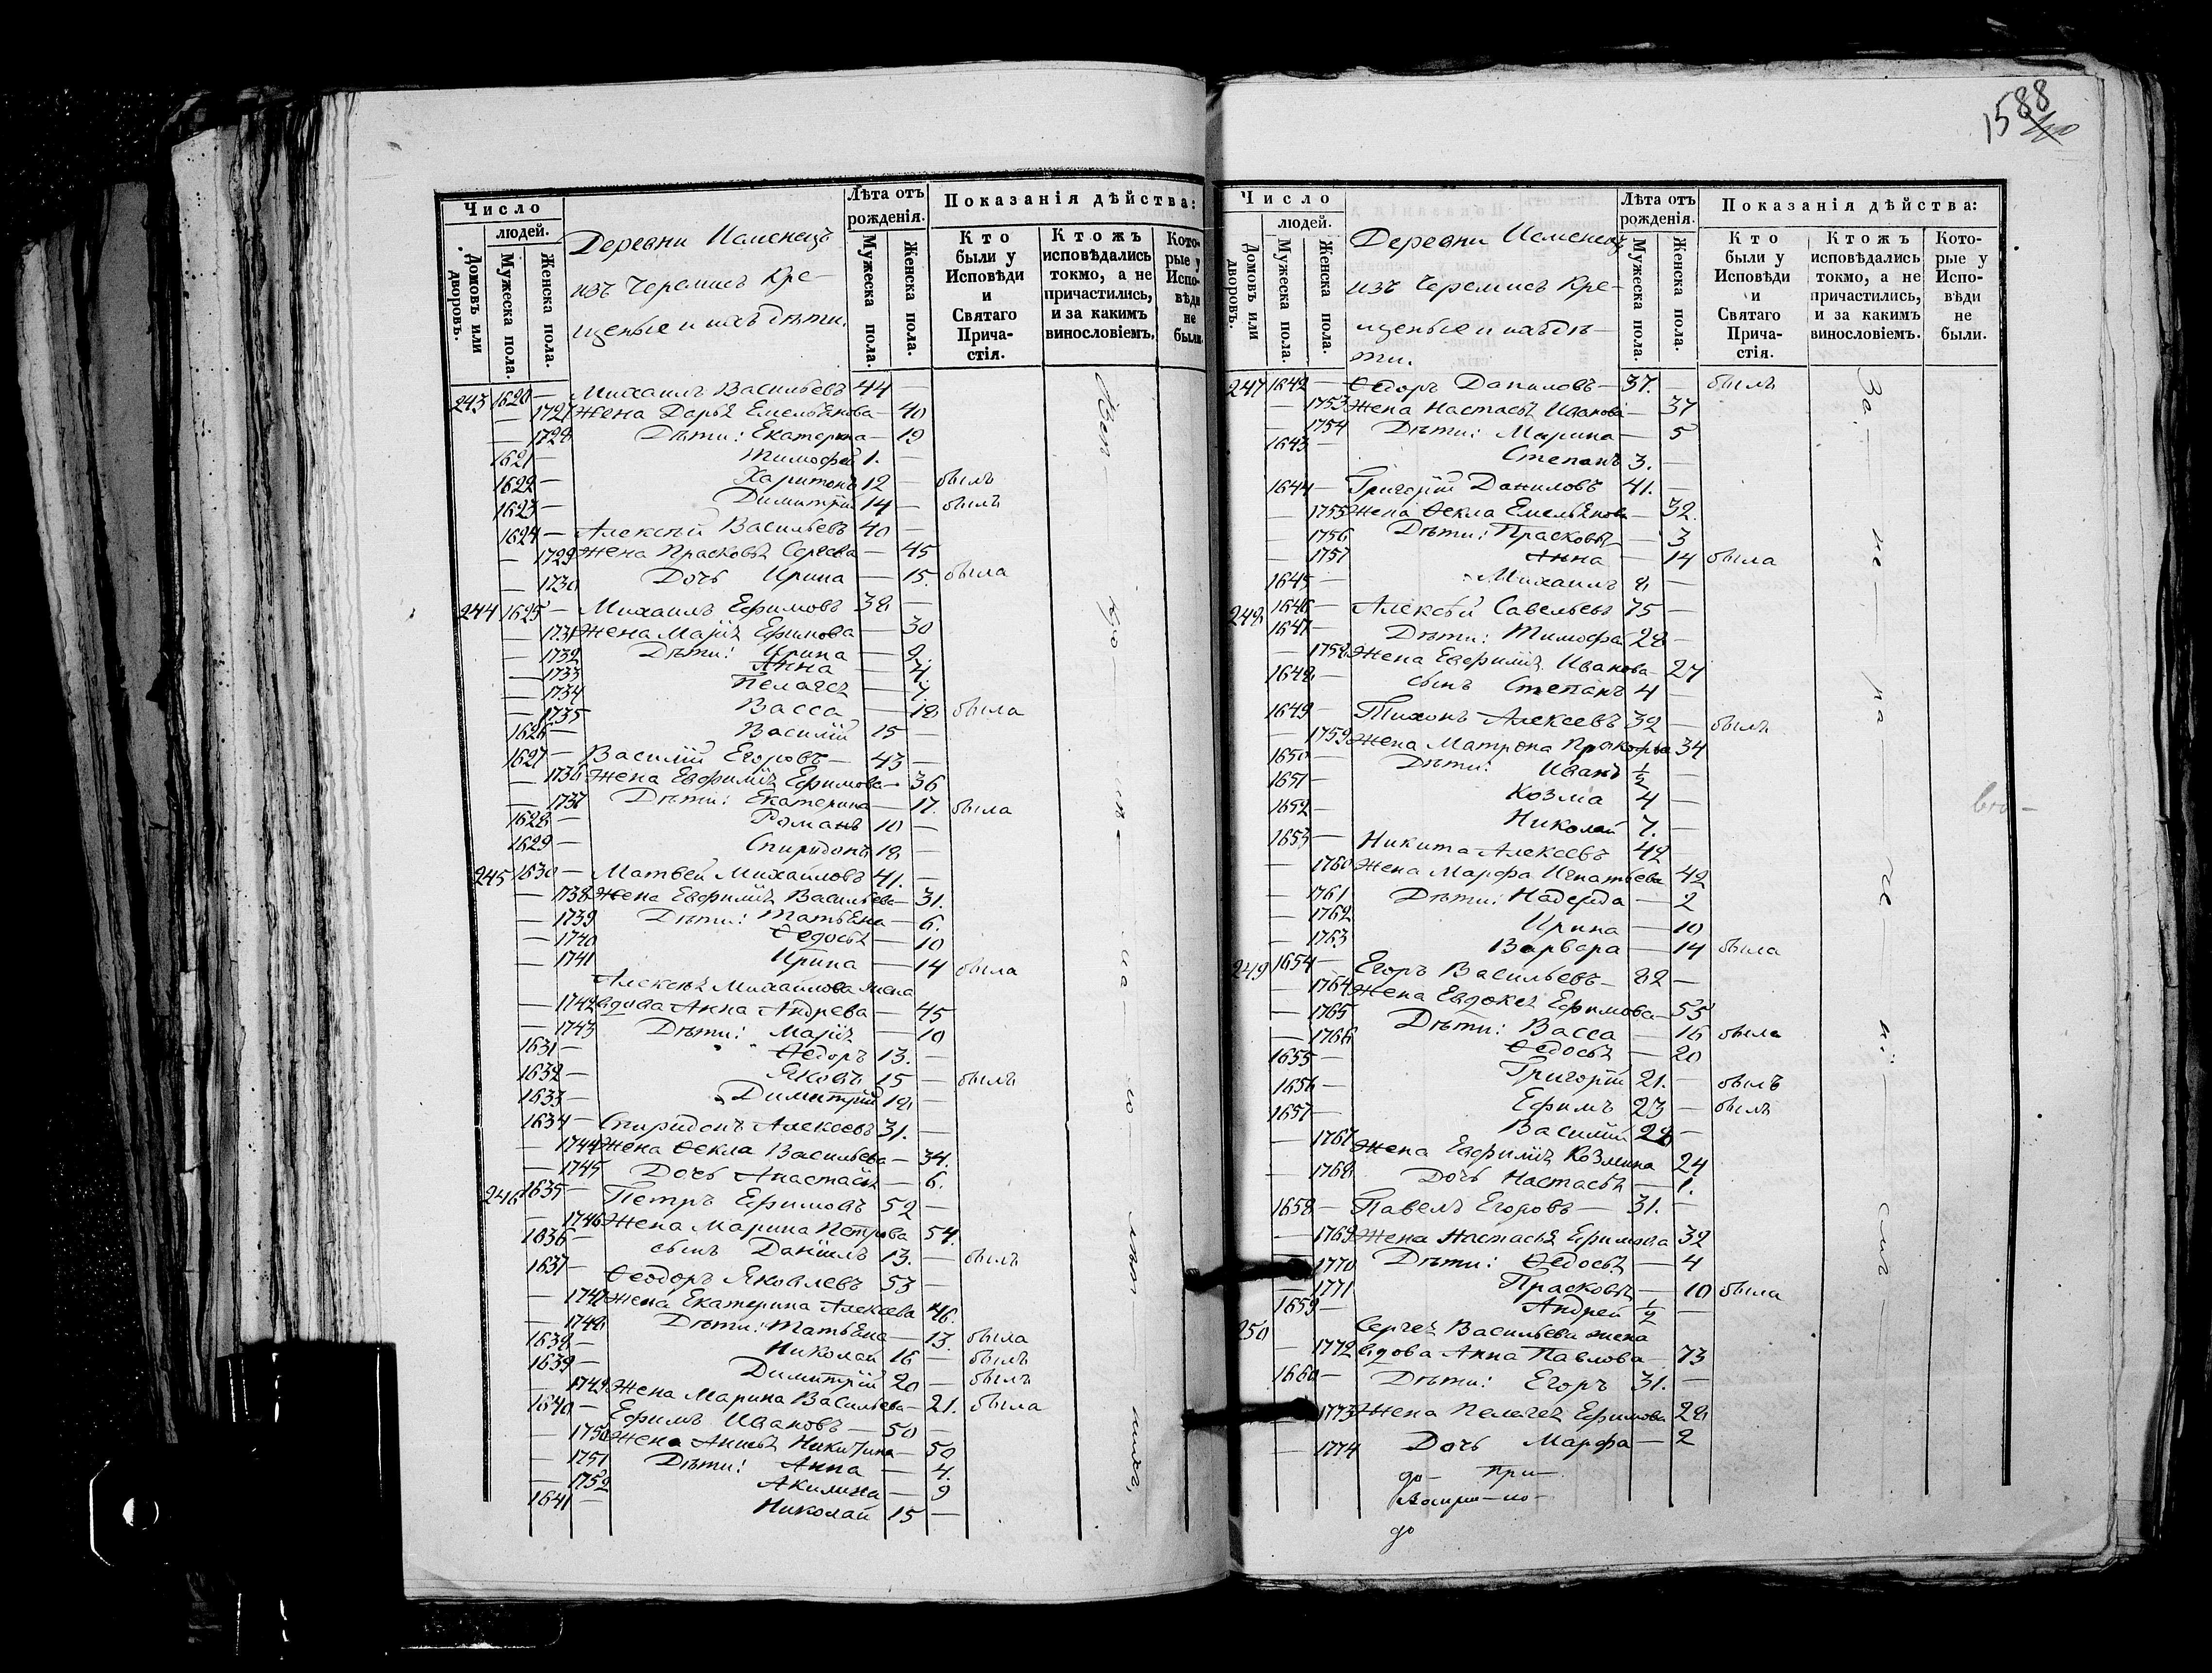 1588
Число
людей.
Домовъ или дворовъ.
Мужеска пола.
Женска пола.
Деревни
изъ Черемисъ Кре-
щеные и ихъ дѣти.
Лѣта отъ рожденія.
Мужеска пола.
Женска пола.
Показанія дѣйства:
Кто были у Исповѣди и Святаго Прича-стія.
Ктожъ исповѣдались токмо, а не причастились, и за какимъ винословіемъ.
Кото-рые у Испо-вѣди не были.
243 1620 — Михаилъ Васильевъ 44 —
— 1727 Жена Дарья Емельянова — 40
— 1728 Дѣти: Екатерина — 19
1621 — Тимофей 1. —
1622 — Харитонъ 12 — былъ
1623 — Димитрій 14 — былъ
1624 — Алексѣй Васильевъ 40 —
— 1729 Жена Прасковья Сергеева — 45
— 1730 Дочь Ирина — 15. была
244 1625 — Михаилъ Ефимовъ 38 —
— 1731 Жена Марія Ефимова — 30
— 1732 Дѣти: Ирина — 2.
— 1733 Анна — 4.
— 1734 Пелагея — 7.
— 1735 Васса — 18 была
1626 — Василій 15 —
1627 — Василій Егоровъ — 43 —
— 1736 Жена Евфимія Ефимова — 36
— 1737 Дѣти: Екатерина — 17. была
1628 — Романъ 10 —
1629 — Спиридонъ 18 —
245 1630 — Матвей Михаиловъ 41. —
— 1738 Жена Евфимія Васильева — 31.
— 1739 Дѣти: Татьяна — 6.
— 1740 Ѳедосья — 10
— 1741 Ирина — 14 была
Алексѣя Михаилова жена
— 1742 вдова Анна Андрева — 45
— 1743 Дѣти: Марія — 10
1631 — Ѳедоръ 13. —
1632 — Яковъ 15 — былъ
1633 — Димитрій 18 —
1634 — Спиридонъ Алексеевъ 31. —
— 1744 Жена Ѳекла Васильева — 34.
— 1745 Дочь Анастасія — 6.
246 1635 — Петръ Ефимовъ 52 —
— 1746 Жена Марина Петрова 54.
1636 — сынъ Даніилъ 13. — былъ
1637 — Ѳеодоръ Яковлевъ 53 —
— 1747 Жена Екатерина Алексеева 46.
— 1748 Дѣти: Татьяна — 13. была
1638 — Николай 16 — былъ
1639 — Димитрій 20 — былъ
— 1749 Жена Марина Васильева — 21. была
1640 — Ефимъ Ивановъ — 50
— 1750 Жена Анисья Никитина — 50
— 1751 Дѣти: Анна — 4.
— 1752 Акилина — 9
1641 — Николай 15 —
Число
людей.
Домовъ или дворовъ.
Мужеска пола.
Женска пола.
Деревни
изъ Черемисъ Кре-
щеные и ихъ дѣ-
ти.
Лѣта отъ рожденія.
Мужеска пола.
Женска пола.
Показанія дѣйства:
Кто были у Исповѣди и Святаго Прича-стія.
Ктожъ исповѣдались токмо, а не причастились, и за какимъ винословіемъ.
Кото-рые у Испо-вѣди не были.
247 1642 — Ѳедоръ Даниловъ — 37. — былъ
— 1753 Жена Настасья Иванова — 37
— 1754 Дѣти: Марина — 5
1643 — Степанъ 3. —
1644 — Григорій Даниловъ 41. —
— 1755 Жена Ѳекла Емельянова — 32.
— 1756 Дѣти: Прасковья — 3
— 1757 Анна — 14 была
1645 — Михаилъ 8 —
248 1646 — Алексѣй Савельевъ 75 —
1647 — Дѣти: Тимофей 28 —
— 1758 Жена Евфимія Иванова — 27
1648 — сынъ Степанъ 4
1649 — Тихонъ Алексеевъ 32 — былъ
— 1759 Жена Матрона Прокофьева 34
1650 — Дѣти: Иванъ ½ —
1651 — Козма 4 —
1652 — Николай 7. —
1653 — Никита Алексеевъ 42 —
— 1760 Жена Марфа Игнатьева 42
— 1761 Дѣти: Надежда — 2
— 1762 Ирина — 10
— 1763 Варвара — 14 была
249 1654 — Егоръ Васильевъ — 82 —
— 1764 Жена Евдокея Ефимова — 55
— 1765 Дѣти: Васса — 16 была
— 1766 Ѳедосья — 20
1655 — Григорій 21. — былъ
1656 — Ефимъ 23 — былъ
1657 — Василій 28 —
— 1767 Жена Евфимія Козмина 24
— 1768 Дочь Настасья — 1.
1658 — Павелъ Егоровъ — 31. —
— 1769 Жена Настасья Ефимова 32
— 1770 Дѣти: Ѳедосья — 4
— 1771 Прасковья — 10 была
1659 — Андрей ½ —
250 Сергея Васильева жена
— 1772 вдова Анна Павлова — 73
1660 — Дѣти: Егоръ 31. —
— 1773 Жена Пелагея Ефимова 28
— 1774 Дочь Марфа — 2